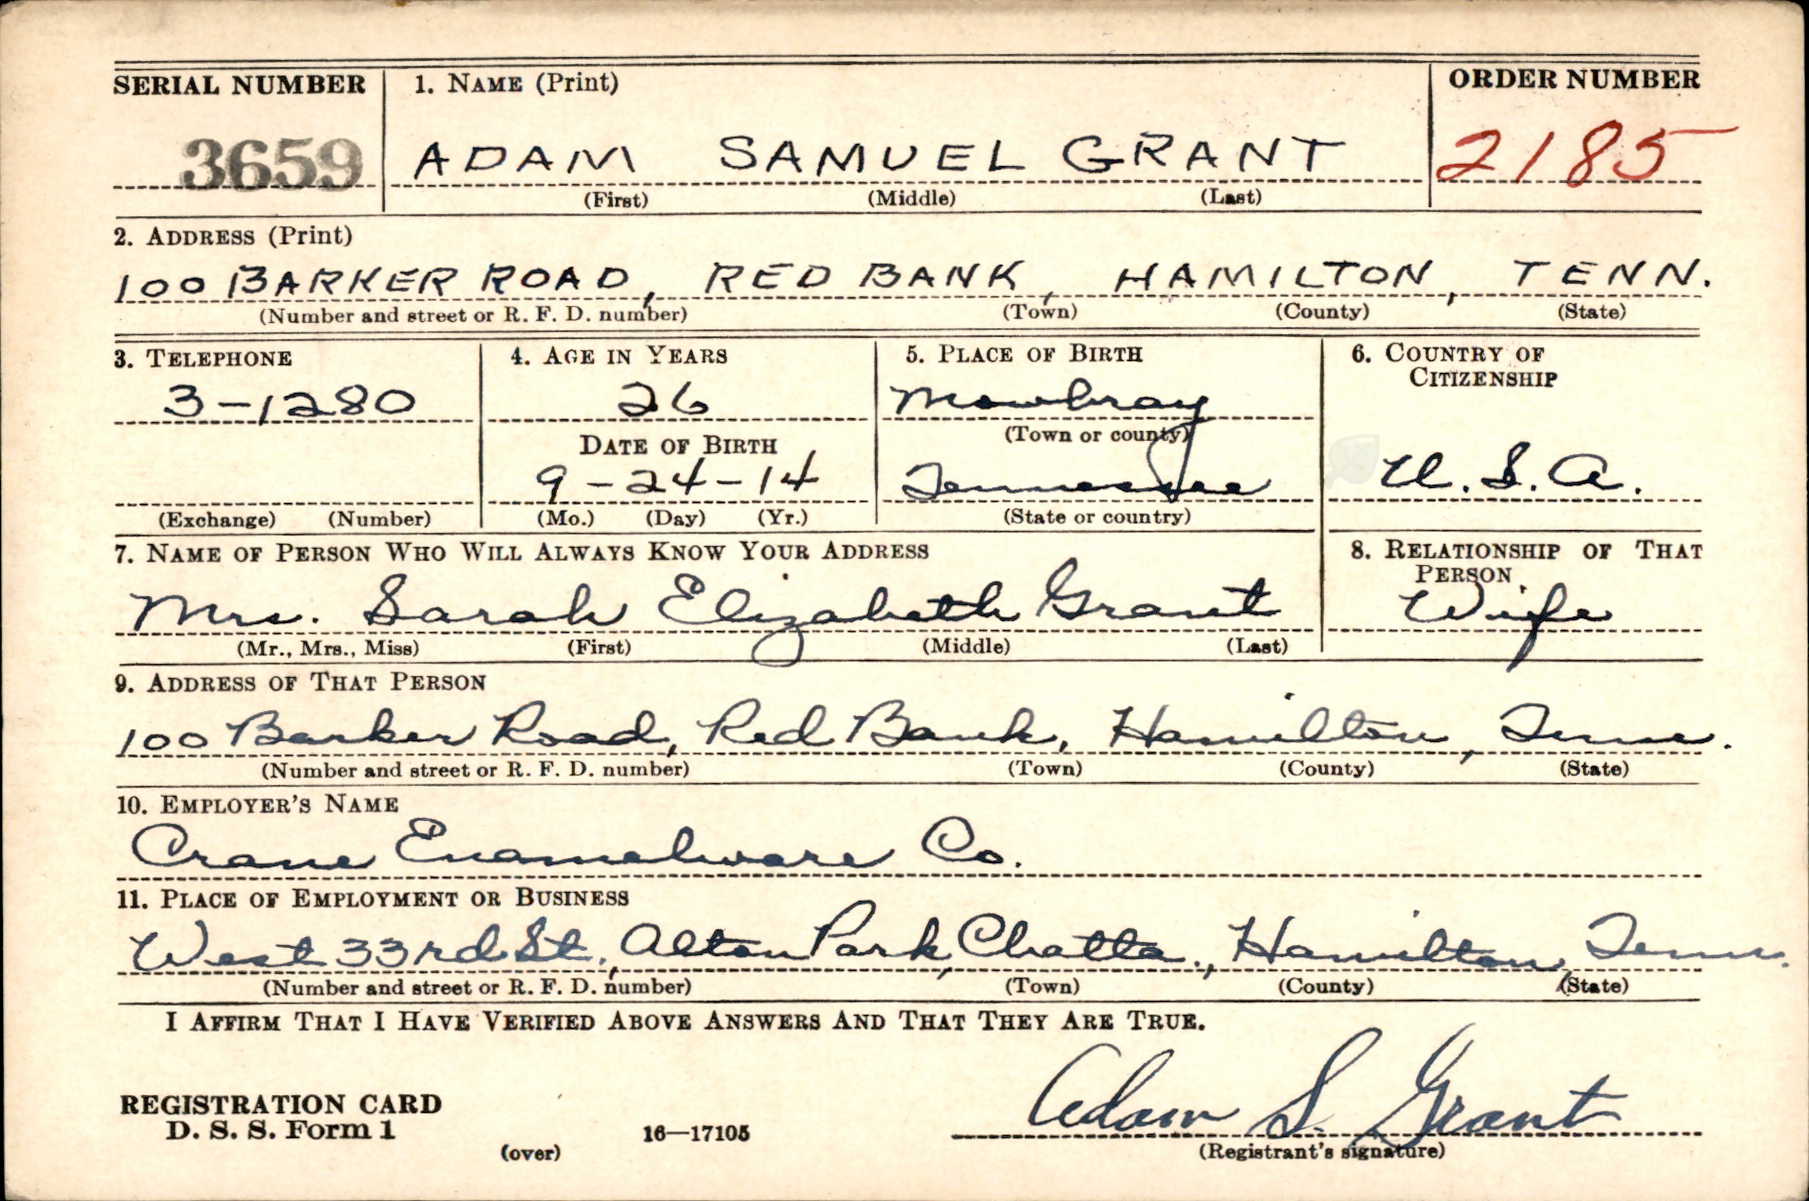 SERIAL NUMBER 1. NAME (Print) ORDER NUMBER
3659 ADAM SAMUEL GRANT 2185
(First) (Middle) (Last)
2. ADDRESS (Print)
100 BARKER ROAD, RED BANK, HAMILTON, TENN.
(Number and street or R. F. D. number) (Town) (County) (State)
3. TELEPHONE 4. AGE IN YEARS 5. PLACE OF BIRTH 6. COUNTRY OF
CITIZENSHIP
3-1280 26 Mowbray
(Town or county)
DATE OF BIRTH
9-24-14 Tennessee U.S.A.
(Exchange) (Number) (Mo.) (Day) (Yr.) (State or country)
7. NAME OF PERSON WHO WILL ALWAYS KNOW YOUR ADDRESS 8. RELATIONSHIP OF THAT
PERSON
Mrs. Sarah Elizabeth Grant Wife
(Mr., Mrs., Miss) (First) (Middle) (Last)
9. ADDRESS OF THAT PERSON
100 Barker Road, Red Bank, Hamilton, Tenn.
(Number and street or R. F. D. number) (Town) (County) (State)
10. EMPLOYER'S NAME
Crane Enamelware Co.
11. PLACE OF EMPLOYMENT OR BUSINESS
West 33rd St., Alton Park, Chatta., Hamilton, Tenn.
(Number and street or R. F. D. number) (Town) (County) (State)
I AFFIRM THAT I HAVE VERIFIED ABOVE ANSWERS AND THAT THEY ARE TRUE.
Adam S. Grant
REGISTRATION CARD
D. S. S. Form 1 16—17105
(over) (Registrant's signature)